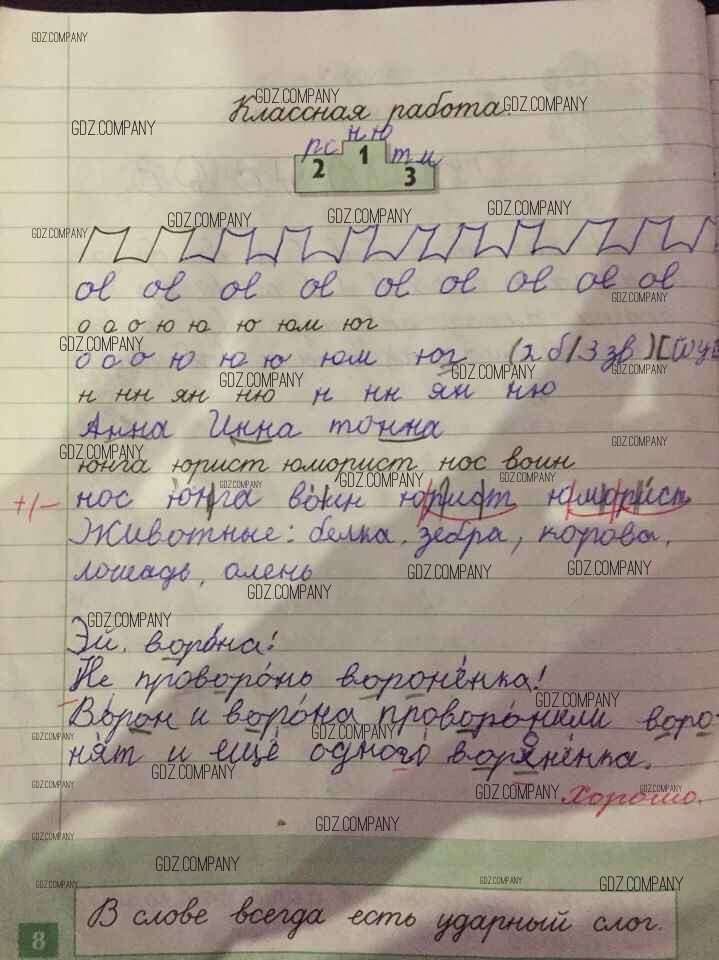 Классная работа.
н ю
р с т и
2 1 3
ol ol ol ol ol ol ol ol ol
о о о ю ю ю юм юг
о о о ю ю ю юм юг (2 б/3 зв)
н нн ян ню н нн ян ню
Анна Инна тонна
юнга юрист юморист нос воин
+/- нос юнга воин юрист юморист
Животные: белка, зебра, корова,
лошадь, олень
Эй, ворона!
Не проворонь воронёнка!
Ворон и ворона проворонили воро-
нят и ещё одного воронёнка.
Хорошо.
8 В слове всегда есть ударный слог.
GDZ.COMPANY